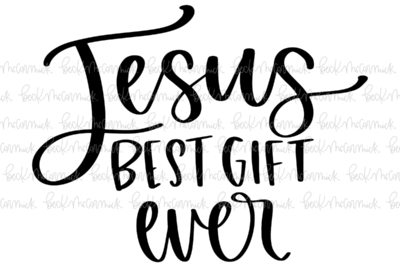 Jesus
BEST GIFT
ever